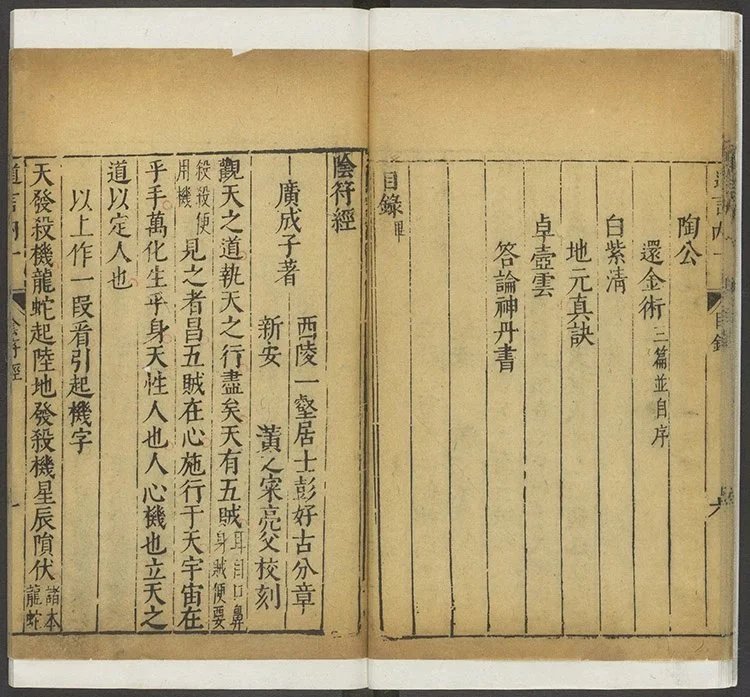 陶公
還金術三篇並自序
白紫清
地元真訣
卓壺雲
答論神丹書
目錄畢
陰符經
廣成子著
西陵一壑居士彭好古分章
新安 黃之寀亮父校刻
觀天之道執天之行盡矣天有五賊耳目口鼻身賊便要
殺殺便用機見之者昌五賊在心施行于天宇宙在
乎手萬化生乎身天性人也人心機也立天之
道以定人也
以上作一段看引起機字
天發殺機龍蛇起陸地發殺機星辰隕伏諸本龍蛇
道言內一 陰符經 一